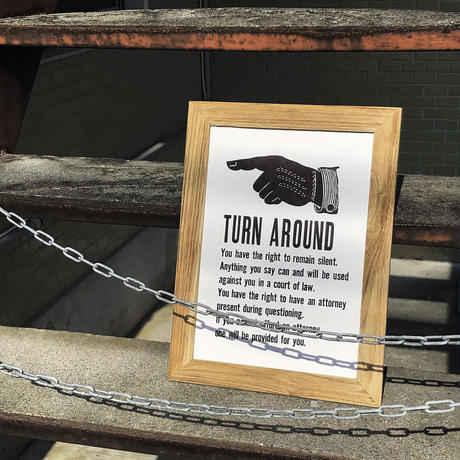 TURN AROUND
You have the right to remain silent.
Anything you say can and will be used
against you in a court of law.
You have the right to have an attorney
present during questioning.
If you cannot afford an attorney,
one will be provided for you.